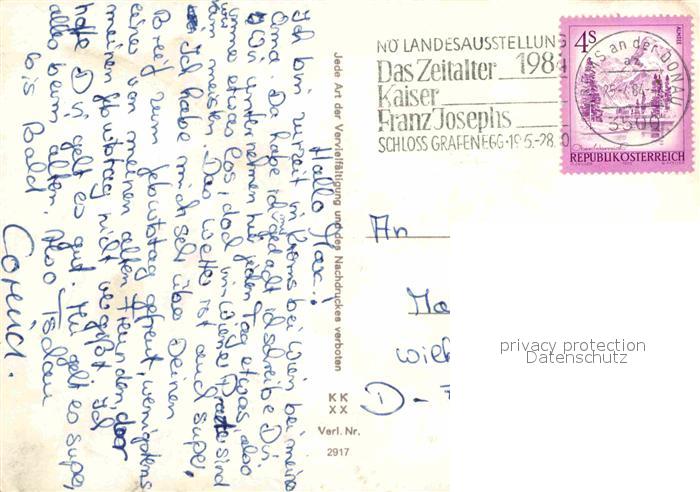 Hallo Max!!
Ich bin zurzeit in Krems bei Wien bei meine
Oma. Da habe ich mir gedacht ich schreibe Dir.
Wir unternehmen hier jeden Tag etwas, also
immer etwas los, doch im Wiener Prater sind
wir am meisten. Das Wetter ist auch super,
Ich habe mich sehr über Deinen
Brief zum Geburtstag gefreut, wenigstens
einer von meinen alten Freunden, der
meinen Geburtstag nicht vergißt. Ich
hoffe Dir geht es gut. Mir geht es super,
alles beim alten. Also Tschau
bis Bald
Corena.
Jede Art der Vervielfältigung und des Nachdruckes verboten
KK
XX
Verl. Nr.
2917
NÖ LANDESAUSSTELLUNG
Das Zeitalter 1984
Kaiser
Franz Josephs
SCHLOSS GRAFENEGG·19.5.-28.10
an der DONAU
3500
4s
ALMSEE
REPUBLIK ÖSTERREICH
An
D -
privacy protection
Datenschutz